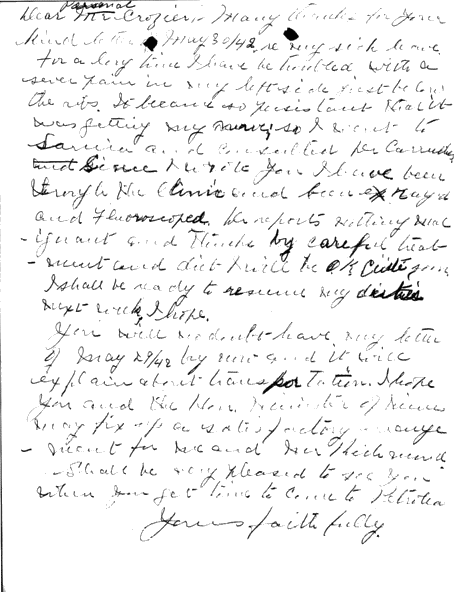 Personal
Dear Mr. Crozier, Many thanks for your
kind letter May 30/42 re my sick leave
For a long time I have been troubled with a
severe pain in my left side just below
the ribs. It became so persistent that it
was getting my nerve, so I went to
Sarnia and consulted Dr Carruthers
Since I wrote you I have been
through the Clinic and been ex rayed
and Fluoroscoped. He reports nothing mal
-ignant and thinks by careful treat
-ment and diet I will be OK
I shall be ready to resume my duties
next week, I hope.
You will no doubt have my letter
of May 29/42 by now and it will
explain about transportation. I hope
you and the Hon. Minister of Mines
may fix up a satisfactory arrange
-ment for me and Mr Richmond
Shall be very pleased to see you
when you get time to come to Petrolia
Yours faithfully